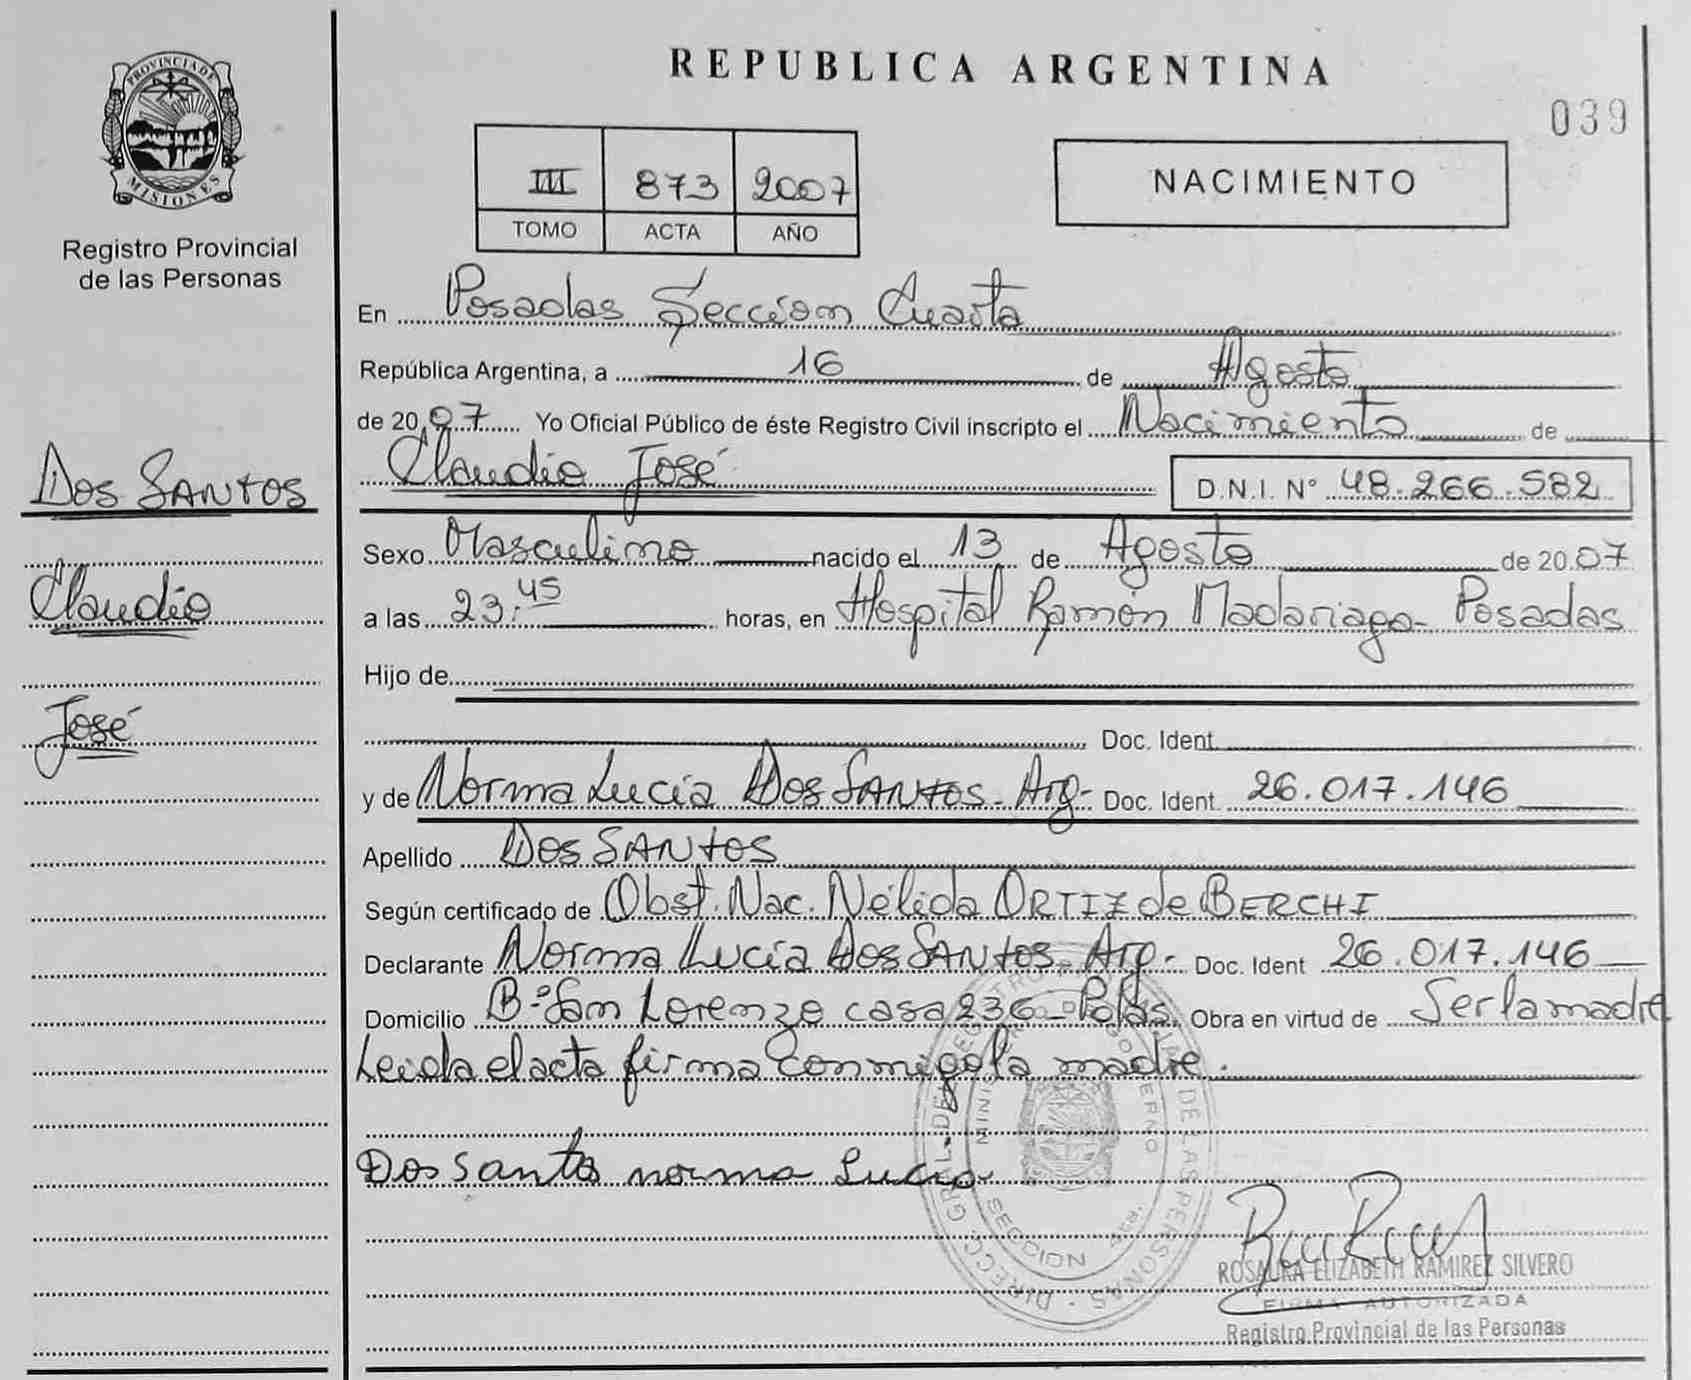 REPUBLICA ARGENTINA
039
PROVINCIA DE
MISIONES
Registro Provincial
de las Personas
III 873 2007
TOMO ACTA AÑO
NACIMIENTO
En Posadas Sección Cuarta
República Argentina, a 16 de Agosto
de 2007 Yo Oficial Público de éste Registro Civil inscripto el Nacimiento de
Claudio José D.N.I. N° 48.266.582
Dos SANTOS
Claudio
José
Sexo Masculino nacido el 13 de Agosto de 2007
a las 23:45 horas, en Hospital Ramón Madariaga - Posadas
Hijo de
Doc. Ident.
y de Norma Lucía Dos SANTOS - Arg- Doc. Ident 26.017.146
Apellido Dos SANTOS
Según certificado de Obst. Nac. Nélida ORTIZ de BERCHI
Declarante Norma Lucía Dos SANTOS - Arg- Doc. Ident 26.017.146
Domicilio B° San Lorenzo casa 236 - Pdas. Obra en virtud de Ser la madre
Leida el acta firma conmigo la madre.
Dos Santos norma Lucia
ROSAURA ELIZABETH RAMIREZ SILVERO
FIRMA AUTORIZADA
Registro Provincial de las Personas
SECCION 4ta.